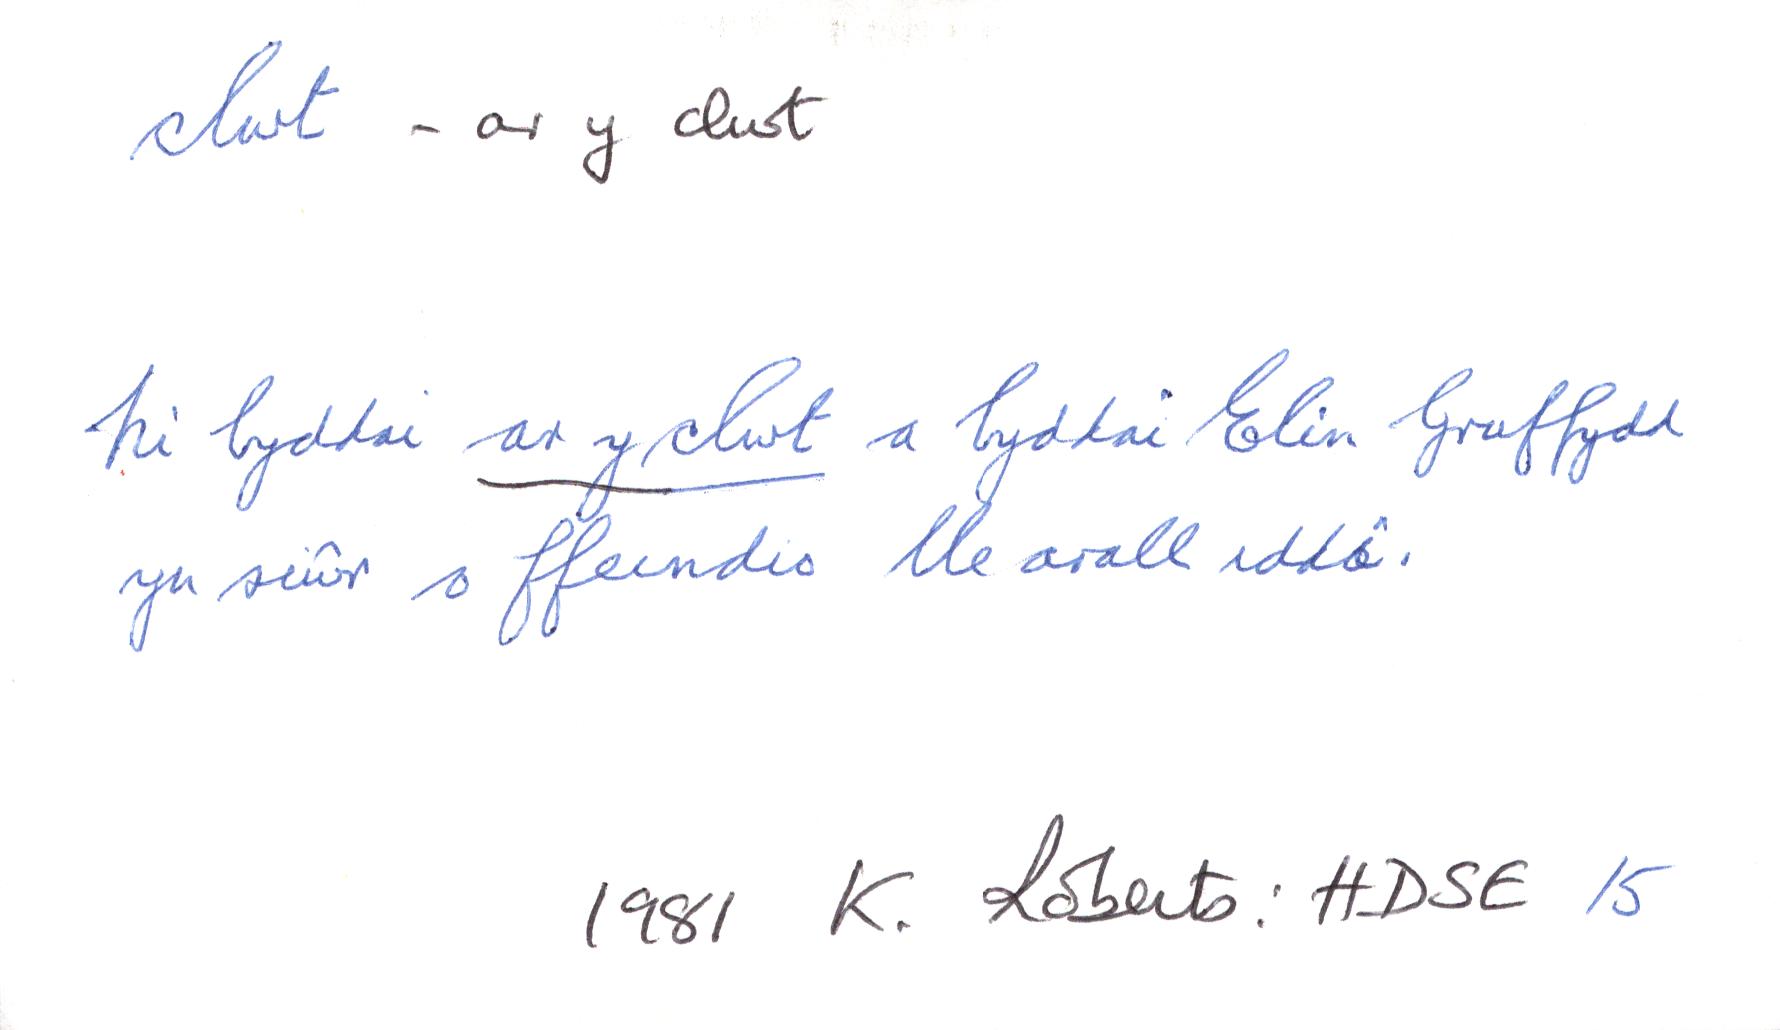 clwt - ar y clwt
Ni byddai ar y clwt a byddai Elin Gruffydd
yn siŵr o ffeindio lle arall iddô.
1981 K. Roberts: HDSE 15